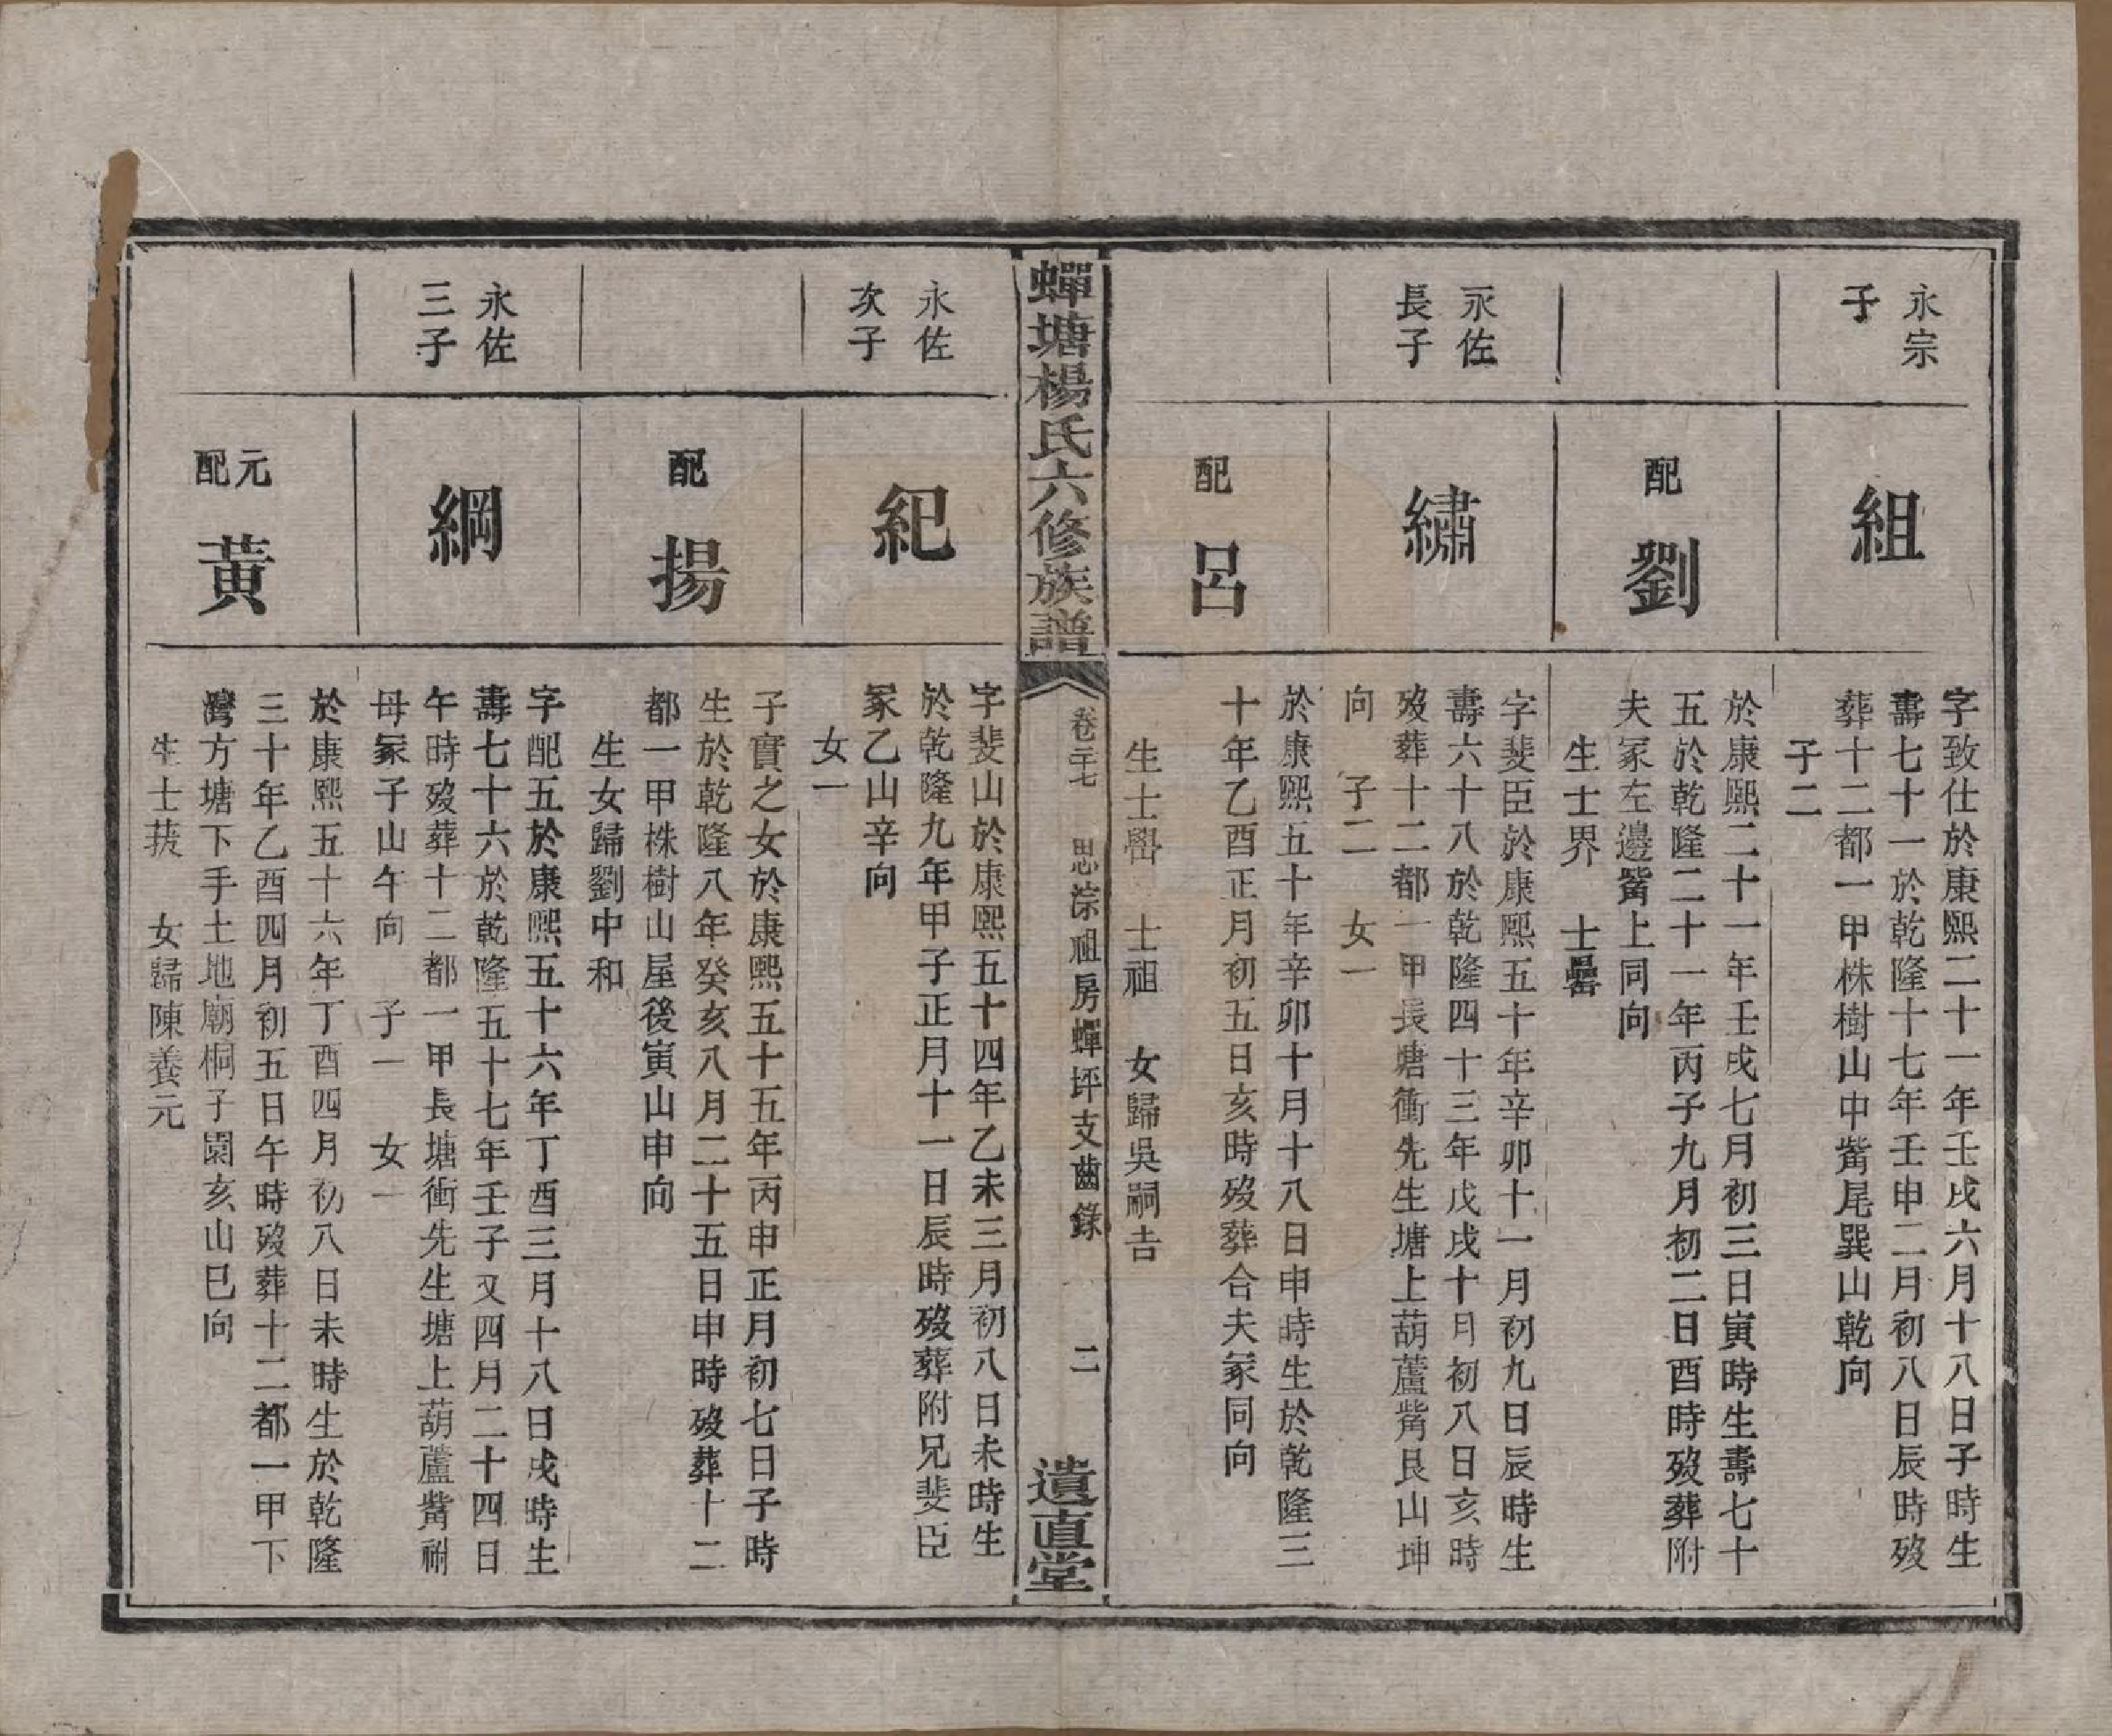 永宗
子
組
字致仕於康熙二十一年壬戌六月十八日子時生
壽七十一於乾隆十七年壬申二月初八日辰時歿
葬十二都一甲株樹山中觜尾巽山乾向
子二
配
劉
於康熙二十一年壬戌七月初三日寅時生壽七十
五於乾隆二十一年丙子九月初二日酉時歿葬附
夫冢左邊觜上同向
生士界　士罍
永佐
長子
繡
字斐臣於康熙五十年辛卯十一月初九日辰時生
壽六十八於乾隆四十三年戊戌十月初八日亥時
歿葬十二都一甲長塘衝先生塘上葫蘆觜艮山坤
向　子二　女一
配
呂
於康熙五十年辛卯十月十八日申時生於乾隆三
十年乙酉正月初五日亥時歿葬合夫冢同向
生士嚳　士祖　女歸吳嗣吉
蟬塘楊氏六修族譜
卷二十七　思淙祖房蟬坪支齒錄　二
遺直堂
永佐
次子
紀
字斐山於康熙五十四年乙未三月初八日未時生
於乾隆九年甲子正月十一日辰時歿葬附兄斐臣
冢乙山辛向
女一
配
揚
子實之女於康熙五十五年丙申正月初七日子時
生於乾隆八年癸亥八月二十五日申時歿葬十二
都一甲株樹山屋後寅山申向
生女歸劉中和
永佐
三子
綱
字配五於康熙五十六年丁酉三月十八日戌時生
壽七十六於乾隆五十七年壬子又四月二十四日
午時歿葬十二都一甲長塘衝先生塘上葫蘆觜祔
母冢子山午向　子一　女一
元配
黃
於康熙五十六年丁酉四月初八日未時生於乾隆
三十年乙酉四月初五日午時歿葬十二都一甲下
灣方塘下手土地廟桐子園亥山巳向
生士　女歸陳養元